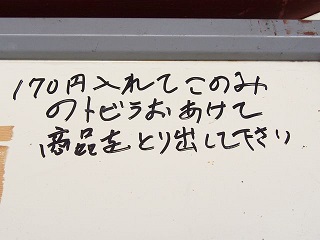 170円入れてこのみ
のトビラおあけて
商品をとり出して下さい